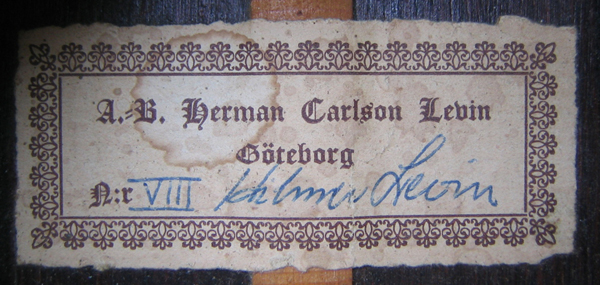 A.-B. Herman Carlson Levin
Göteborg
N:r VIII Hilmer Levin